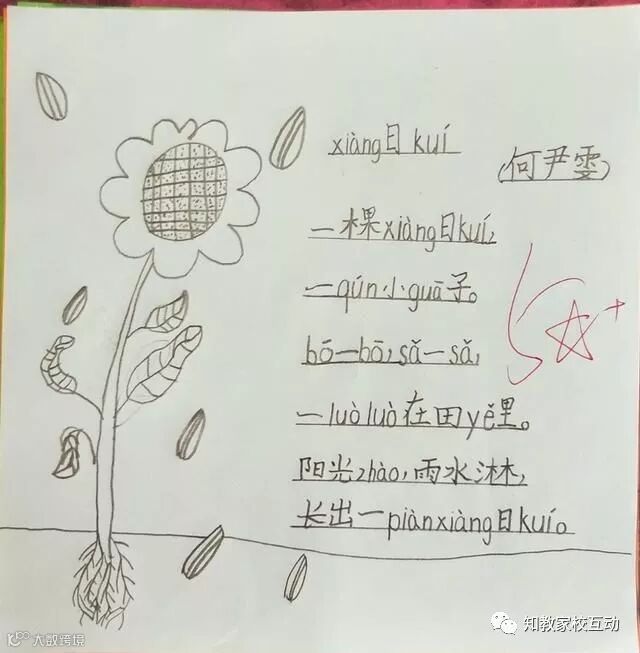 xiàng日kuí
(何尹雯)
一棵xiàng日kuí,
一qún小guā子。
bō一bō,sǎ一sǎ,
一luò luò在田yě里。
阳光zhào,雨水淋,
长出一piàn xiàng日kuí。
5☆+
知教家校互动
大数跨境